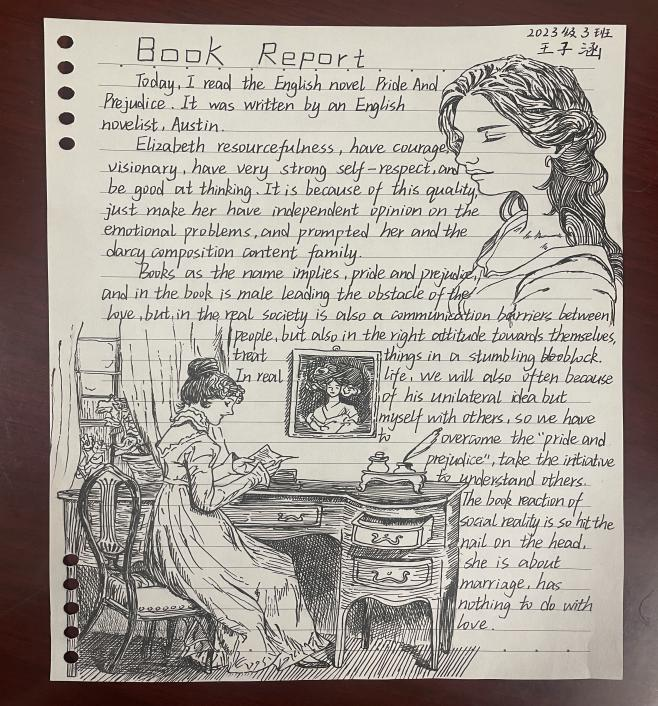 2023级3班
王子涵
Book Report
Today, I read the English novel Pride And
Prejudice. It was written by an English
novelist, Austin.
Elizabeth resourcefulness, have courage,
visionary, have very strong self-respect, and
be good at thinking. It is because of this quality,
just make her have independent opinion on the
emotional problems, and prompted her and the
darcy composition content family.
Books as the name implies, pride and prejudice,
and in the book is male leading the obstacle of the
love, but, in the real society is also a communication barriers between
people, but also in the right attitude towards themselves,
treat things in a stumbling blooblock.
In real life, we will also often because
of his unilateral idea but
myself with others, so we have
to overcome the "pride and
prejudice", take the initiative
to understand others.
The book reaction of
social reality is so hit the
nail on the head,
she is about
marriage, has
nothing to do with
love.